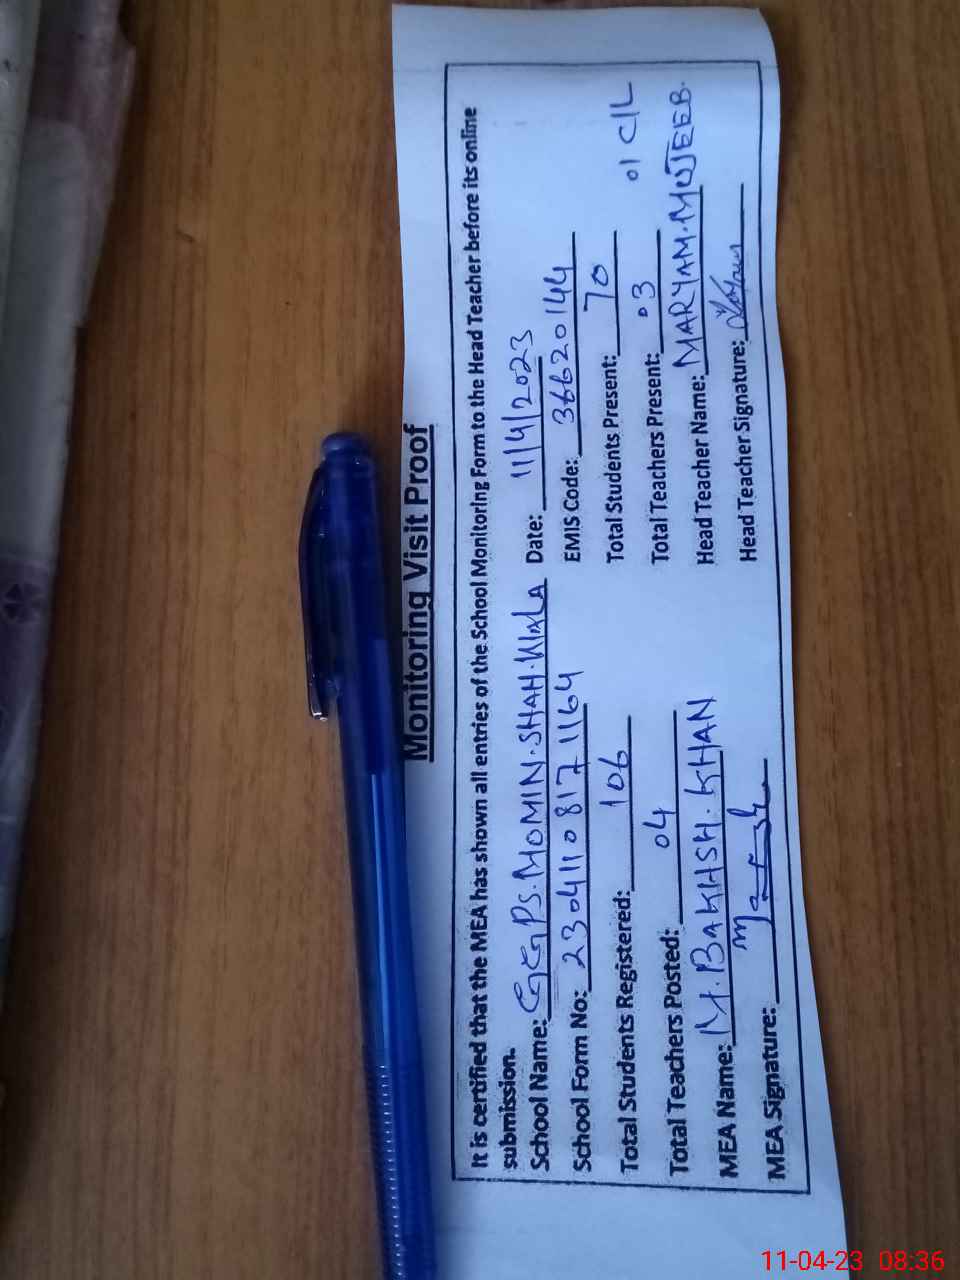 Monitoring Visit Proof
It is certified that the MEA has shown all entries of the School Monitoring Form to the Head Teacher before its online
submission.
School Name: GGPS.MOMIN.SHAH.WALA Date: 11/4/2023
School Form No: 23041108171164 EMIS Code: 36620144
Total Students Registered: 106 Total Students Present: 70
Total Teachers Posted: 04 Total Teachers Present: 03 01 C/L
MEA Name: M.BAKHSH.KHAN Head Teacher Name: MARYAM.MUJEEB.
MEA Signature: Head Teacher Signature:
11-04-23 08:36